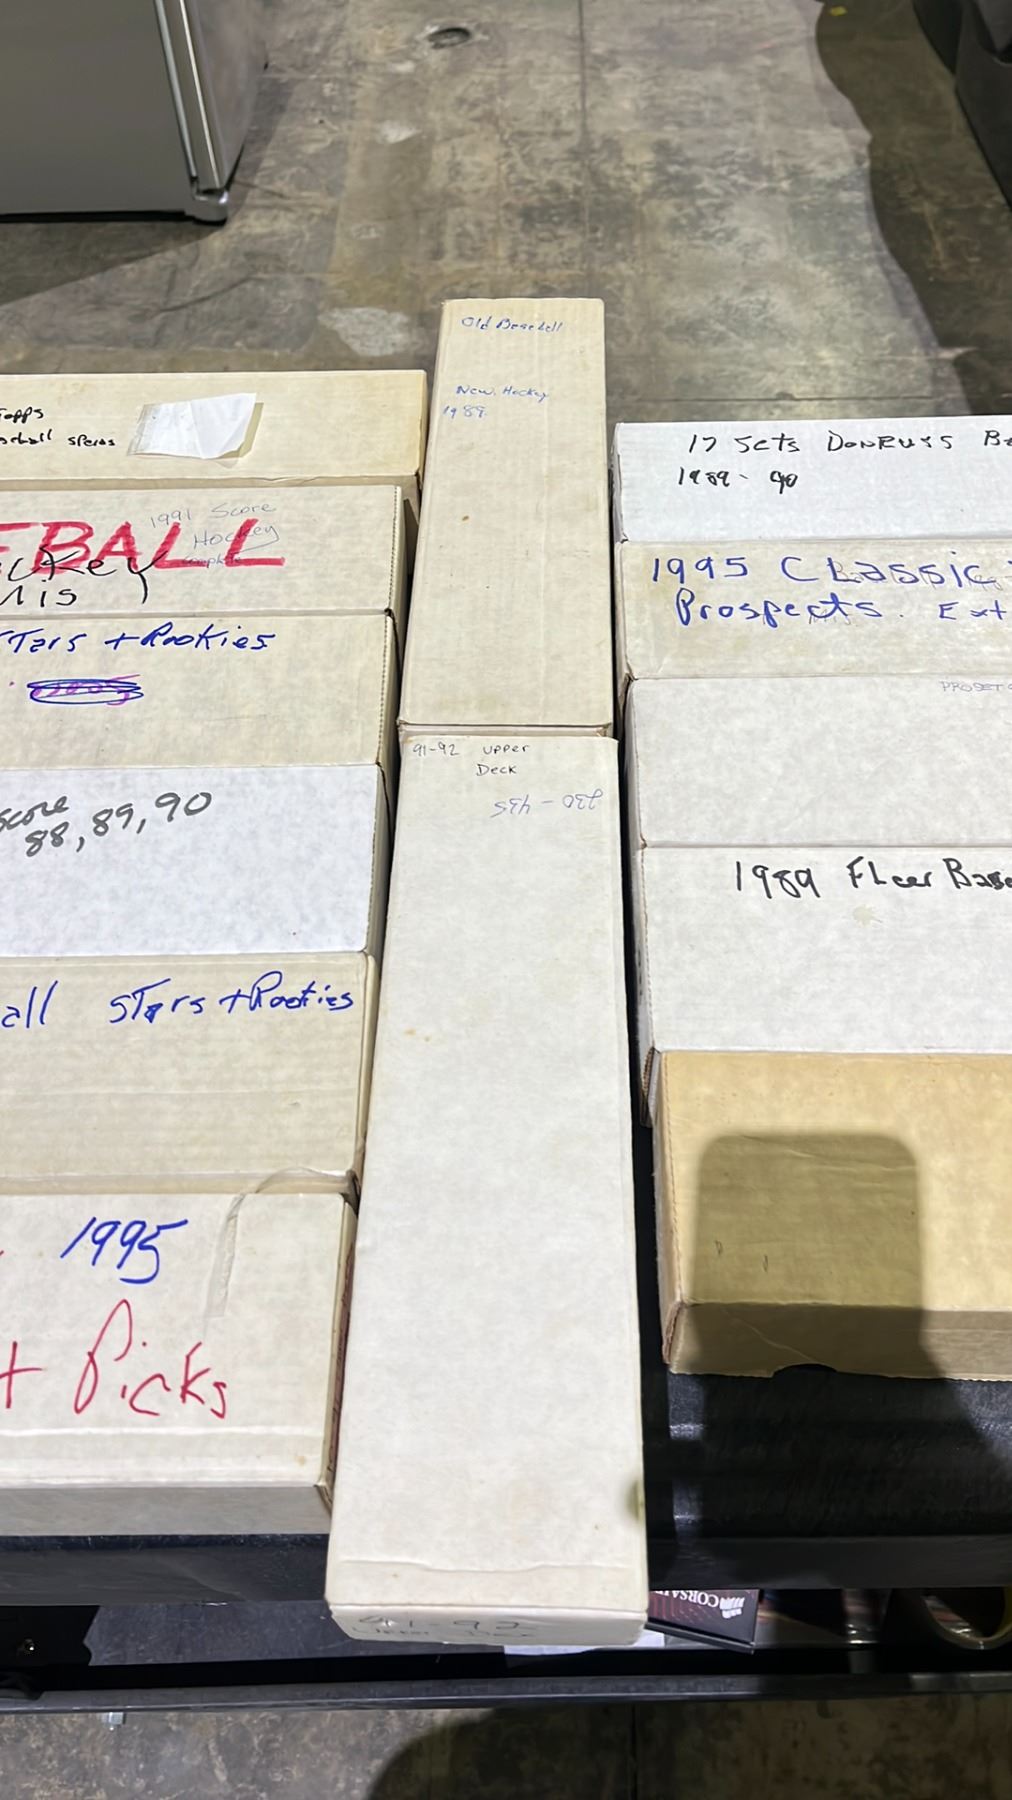 Old Baseball
New. Hockey
1989.
Topps
spares
1991 Score
Hockey
Complete
EBALL
cKey
Mis
STars + Rookies
score
88, 89, 90
all STars + Rookies
1995
+ Picks
91-92 upper
Deck
230 - 435
91-92
17 Sets DonRuss Ba
1989 - 90
1995 CLassic
Prospects. Ext
PROSET
1989 FLeer Base
CORSAI